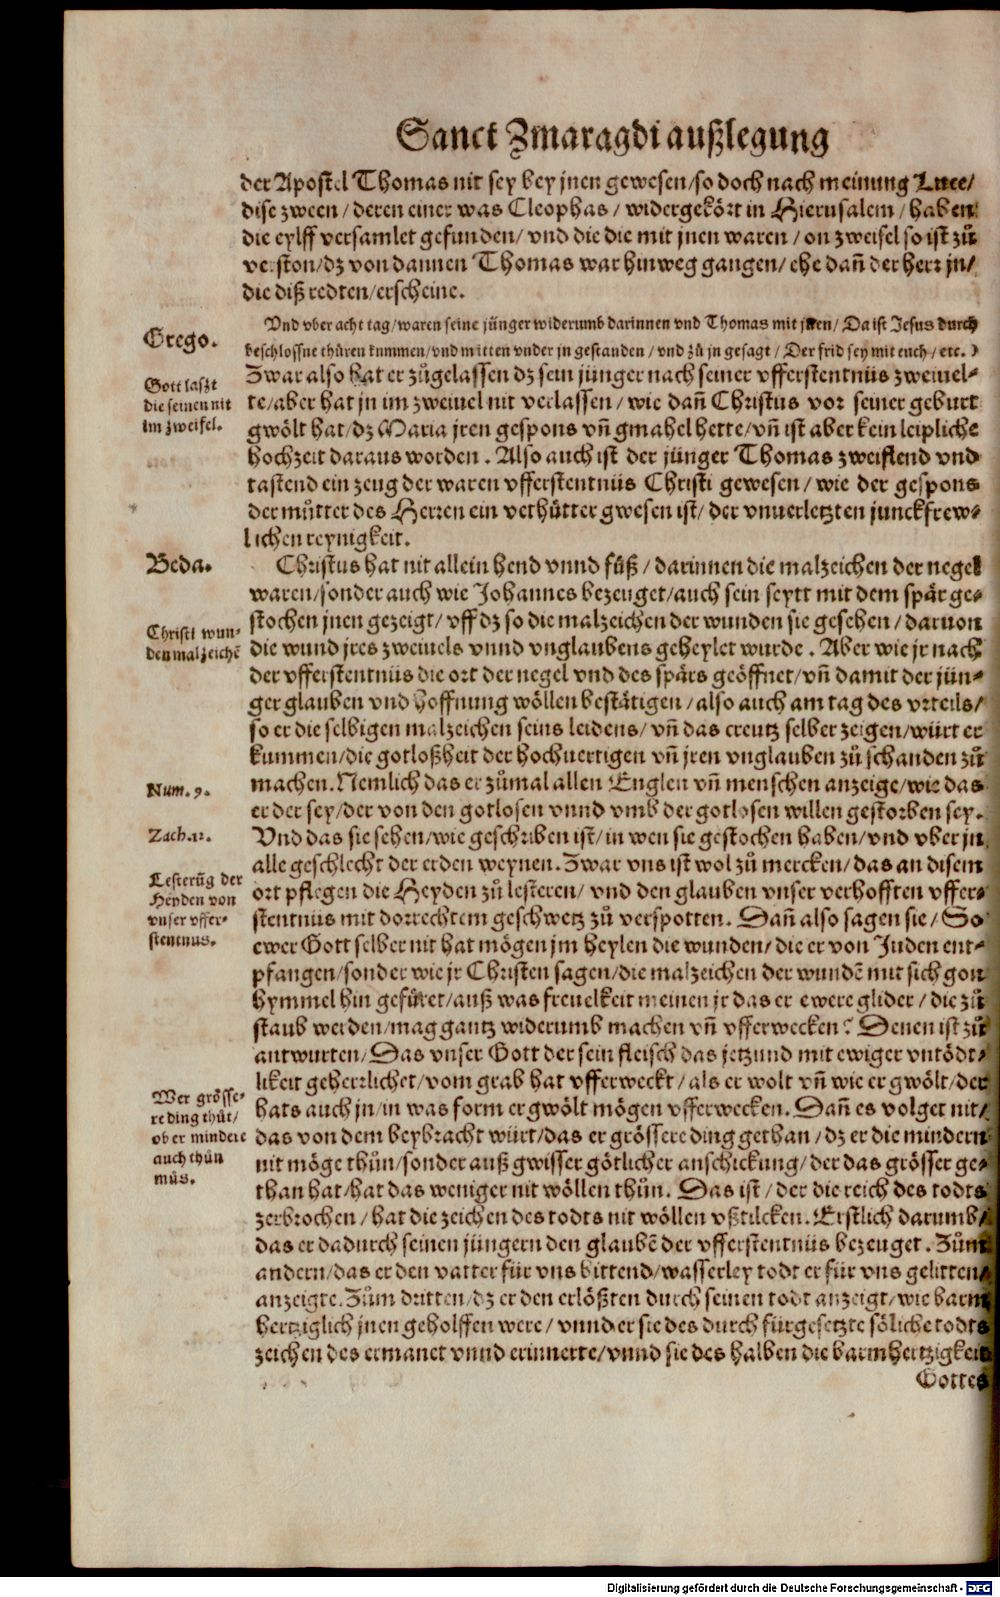 Sanct Zmaragdi außlegung
der Apostel Thomas nit sey bey jnen gewesen/so doch nach meinung Luce/
dise zween/deren einer was Cleophas/widergekört in Hierusalem/haben
die eylff versamlet gefunden/vnd die die mit jnen waren/on zweifel so ist zů
verston/dz von dannen Thomas war hinweg gangen/ehe dañ der herr jn/
die diß redten/erscheine.
Vnd vber acht tag/waren seine jünger widerumb darinnen vnd Thomas mit jnen/Da ist Jesus durch
beschlossne thüren kummen/vnd mitten vnder jn gestanden/vnd zů jn gesagt/Der frid sey mit euch/etc.)
Grego.
Gott laszt
die seinen nit
im zweifel.
Zwar also hat er zůgelassen dz sein junger nach seiner vfferstentnüs zweiuel-
te/aber hat jn im zweiuel nit verlassen/wie dañ Christus vor seiner geburt
gwölt hat/dz Maria jren gespons vñ gmahel hette/vñ ist aber kein leipliche
hochzeit daraus worden. Also auch ist der jünger Thomas zweiflend vnd
tastend ein zeug der waren vfferstentnüs Christi gewesen/wie der gespons
der můtter des Herren ein verhütter gwesen ist/der vnuerletzten junckfrew-
lichen reynigkeit.
Beda.
Christi wun-
den malzeichē
Christus hat nit allein hend vnnd füß/darinnen die malzeichen der negel
waren/sonder auch wie Johannes bezeuget/auch sein seytt mit dem spär ge-
stochen jnen gezeigt/vff dz so die malzeichen der wunden sie gesehen/daruon
die wund jres zweiuels vnnd vnglaubens geheylet wurde. Aber wie jr nach
der vfferstentnüs die ort der negel vnd des spärs geöffnet/vñ damit der jün-
ger glauben vnd hoffnung wöllen bestätigen/also auch am tag des vrteils/
so er die selbigen malzeichen seins leidens/vñ das creutz selber zeigen/würt er
kummen/die gotloßheit der hochuertigen vñ jren vnglauben zů schanden zů
Num. 9.
machen. Nemlich das er zůmal allen Englen vñ menschen anzeige/wie das
er der sey/der von den gotlosen vnnd vmb der gotlosen willen gestorben sey.
Zach. 12.
Vnd das sie sehen/wie geschriben ist/in wen sie gestochen haben/vnd vber jn
alle geschlecht der erden weynen. Zwar vns ist wol zů mercken/das an disem
Lesterūg der
Heyden von
vnser vffer-
stentnus.
ort pflegen die Heyden zů lesteren/vnd den glauben vnser verhofften vffer-
stentnüs mit dorrechtem geschwetz zů verspotten. Dañ also sagen sie/So
ewer Gott selber nit hat mögen jm heylen die wunden/die er von Juden ent-
pfangen/sonder wie jr Christen sagen/die malzeichen der wundē mit sich gon
hymmel hin gefüret/auß was freuelkeit meinen jr das er ewere glider/die zů
staub werden/mag gantz widerumb machen vñ vfferwecken? Denen ist zů
antwurten/Das vnser Gott der sein fleisch das jetzund mit ewiger vntödt-
likeit geherrlichet/vom grab hat vfferweckt/als er wolt vñ wie er gwölt/der
Wer grösse-
re ding thůt/
ob er mindere
auch thůn
můs.
hats auch jn/in was form er gwölt mögen vfferwecken. Dañ es volget nit/
das von dem beybracht würt/das er grössere ding gethan/dz er die mindern
nit möge thůn/sonder auß gwisser götlicher anschickung/der das grösser ge-
than hat/hat das weniger nit wöllen thůn. Das ist/der die reich des todts
zerbrochen/hat die zeichen des todts nit wöllen vßtilcken. Erstlich darumb/
das er dadurch seinen jüngern den glaubē der vfferstentnüs bezeuget. Zům
andern/das er den vatter für vns bittend/wasserley todt er für vns gelitten/
anzeigte. Zům dritten/dz er den erlößten durch seinen todt anzeigt/wie barm
hertziglich jnen geholffen were/vnnd er sie des durch fürgesetzte söliche todts
zeichen des ermanet vnnd erinnerte/vnnd sie des halben die barmhertzigkeit
Gottes
Digitalisierung gefördert durch die Deutsche Forschungsgemeinschaft - DFG